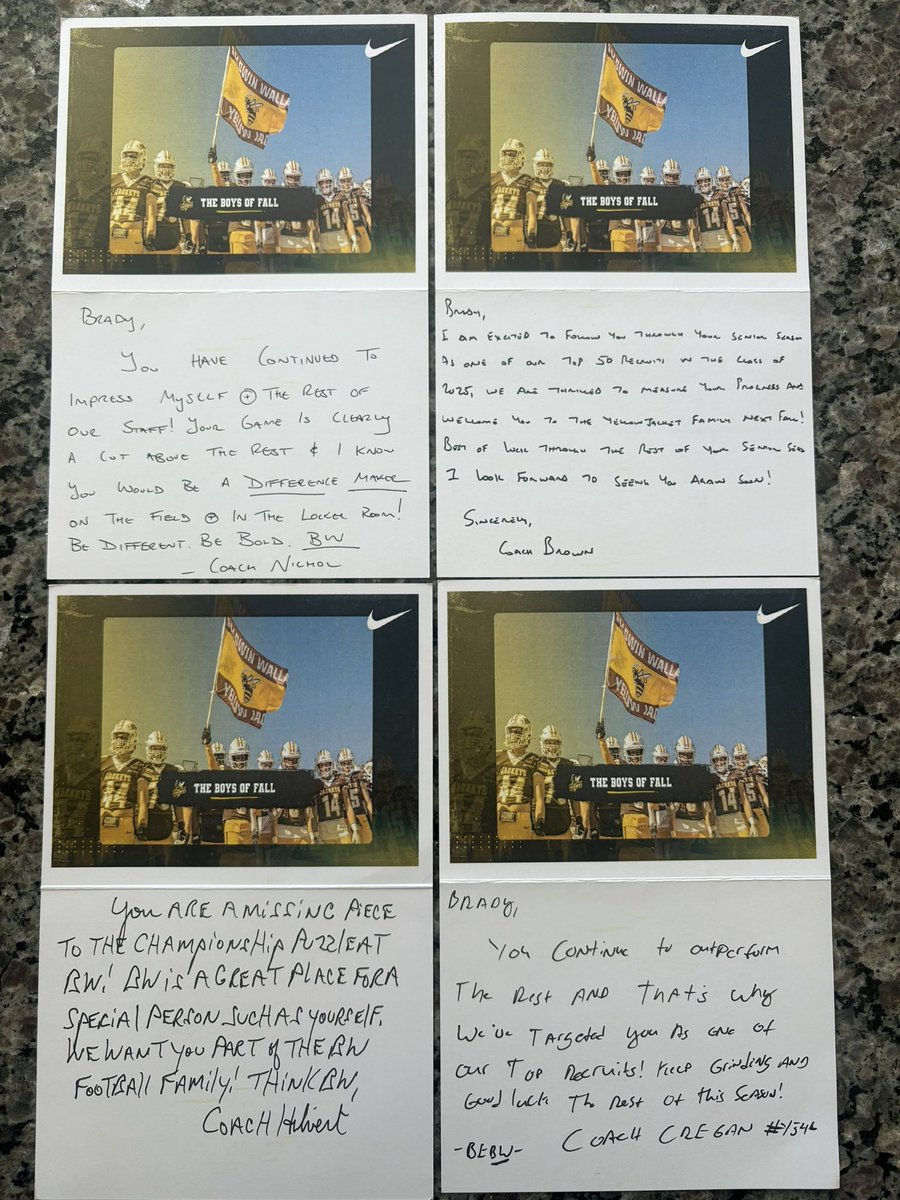 DWIN WALLA
THE BOYS OF FALL
14
BRADY,
YOU HAVE CONTINUED TO
IMPRESS MYSELF + THE REST OF
OUR STAFF! YOUR GAME IS CLEARLY
A CUT ABOVE THE REST & I KNOW
YOU WOULD BE A DIFFERENCE MAKER
ON THE FIELD + IN THE LOCKER ROOM!
BE DIFFERENT. BE BOLD. BW
- COACH NICHOL
DWIN WALLA
THE BOYS OF FALL
14
BRADY,
I AM EXCITED TO FOLLOW YOU THROUGH YOUR SENIOR SEASON
AS ONE OF OUR TOP 50 RECRUITS IN THE CLASS OF
2025, WE ARE THRILLED TO MEASURE YOUR PROGRESS AND
WELCOME YOU TO THE YELLOWJACKET FAMILY NEXT FALL!
BEST OF LUCK THROUGH THE REST OF YOUR SENIOR
I LOOK FORWARD TO SEEING YOU AGAIN SOON!
SINCERELY,
COACH BROWN
DWIN WALLA
JACKETS
THE BOYS OF FALL
14
YOU ARE A MISSING PIECE
TO THE CHAMPIONSHIP PUZZLE AT
BW! BW IS A GREAT PLACE FOR A
SPECIAL PERSON SUCH AS YOURSELF.
WE WANT YOU PART OF THE BW
FOOTBALL FAMILY! THINK BW,
COACH Hilvert
DWIN WALLA
JACKETS
THE BOYS OF FALL
14
BRADY,
You Continue to outperform
The Rest AND That's why
We've Targeted you As one of
our Top Recruits! Keep Grinding AND
Good luck The Rest of this Season!
-BEBW- COACH CREGAN